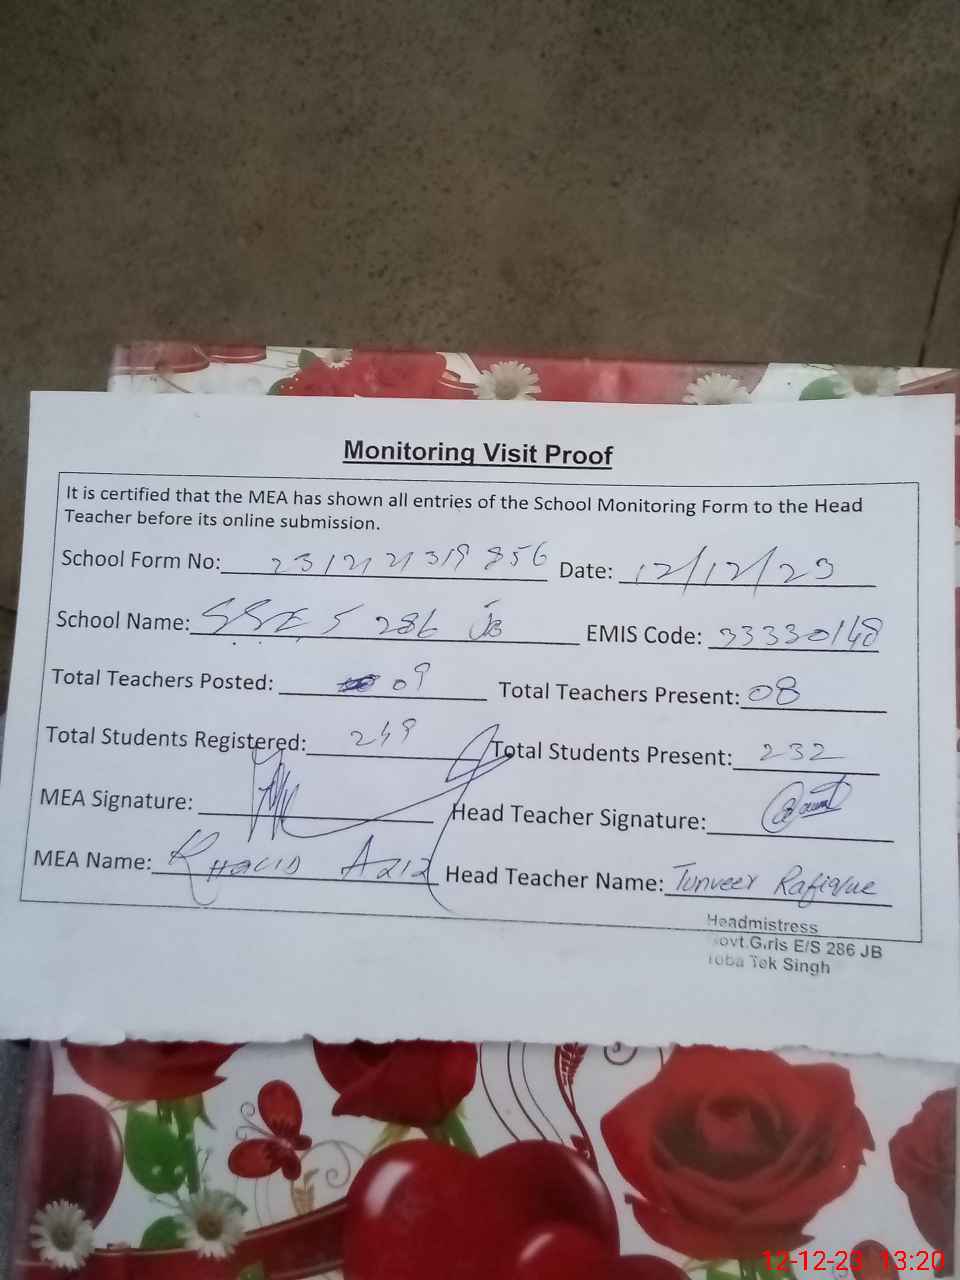 Monitoring Visit Proof
It is certified that the MEA has shown all entries of the School Monitoring Form to the Head
Teacher before its online submission.
School Form No: 2312121319856 Date: 12/12/23
School Name: 286 JB EMIS Code: 33330148
Total Teachers Posted: 09 Total Teachers Present: 08
Total Students Registered: 249 Total Students Present: 232
MEA Signature: Head Teacher Signature:
MEA Name: KHALID AZIZ Head Teacher Name: Tunveer Rafique
Headmistress
Govt.Girls E/S 286 JB
Toba Tek Singh
12-12-23 13:20